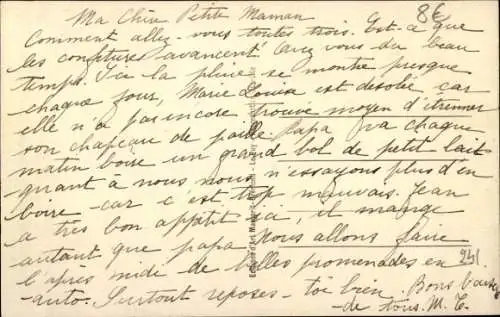 8€
Ma Chère Petite Maman
Comment allez-vous toutes trois. Est-ce que
les confitures avancent? Avez vous du beau
temps. Ici la pluie se montre presque
chaque jour, Marie Louise est désolée car
elle n'a pas encore trouvé moyen d'étrenner
son chapeau de paille. Papa va chaque
matin boire un grand bol de petit lait
quant à nous nous n'essayons plus d'en
boire car c'est trop mauvais. Jean
a très bon appétit ici, il mange
autant que papa. Nous allons faire
l'après midi de belles promenades en
auto. Surtout reposes-toi bien. Bons baisers
de tous. M. T.